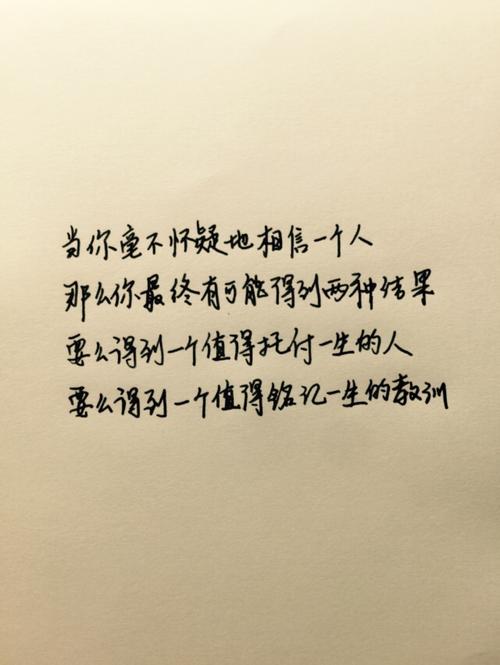 当你毫不怀疑地相信一个人
那么你最终有可能得到两种结果
要么得到一个值得托付一生的人
要么得到一个值得铭记一生的教训